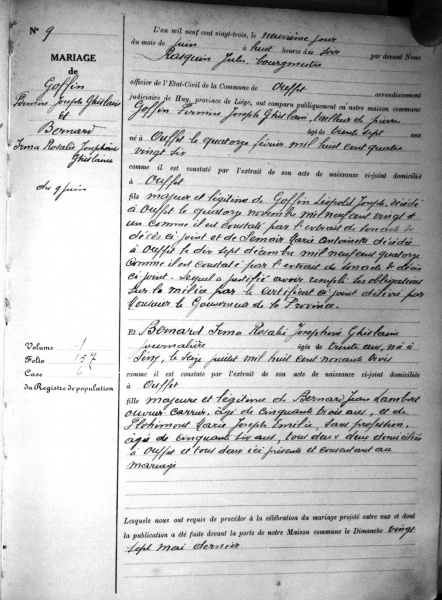 N° 9
MARIAGE
de
Goffin
Firmin Joseph Ghislain
et
Bernard
Irma Rosalie Joséphine
Ghislaine
du 9 juin
Volume 1
Folio 157
Case 6
du Registre de population
L'an mil neuf cent vingt-trois, le neuvième jour
du mois de juin à huit heures du soir par devant Nous
Rasquin Jules, bourgmestre
officier de l'Etat-Civil de la Commune de Ouffet arrondissement
judiciaire de Huy, province de Liége, ont comparu publiquement en notre maison commune
Goffin Firmin Joseph Ghislain, tailleur de pierres
âgé de trente sept ans
né à Ouffet le quatorze février mil huit cent quatre
vingt six
comme il est constaté par l'extrait de son acte de naissance ci-joint domicilié
à Ouffet
fils majeur et légitime de Goffin Léopold Joseph, décédé
à Ouffet le quatorze novembre mil neuf cent vingt et
un comme il est constaté par l'extrait de son acte de
décès ci-joint et de Lemoir Marie Antoinette décédée
à Ouffet le dix sept décembre mil neuf cent quatorze
comme il est constaté par l'extrait de son acte de décès
ci-joint. Lequel a justifié avoir rempli ses obligations
sur la milice par le certificat ci-joint délivré par
Monsieur le Gouverneur de la Province.
Et Bernard Irma Rosalie Joséphine Ghislaine
journalière âgée de trente ans, né à
le seize juillet mil huit cent nonante trois
comme il est constaté par l'extrait de son acte de naissance ci-joint domiciliée
à Ouffet
fille majeure et légitime de Bernard Jean Lambert
ouvrier carrier, âgé de cinquante trois ans, et de
Marie Joseph Emilie, sans profession,
âgée de cinquante six ans, tous deux domiciliés
à Ouffet et tous deux ici présents et consentant au
mariage
Lesquels nous ont requis de procéder à la célébration du mariage projeté entre eux et dont
la publication a été faite devant la porte de notre Maison commune le Dimanche vingt
sept mai dernier